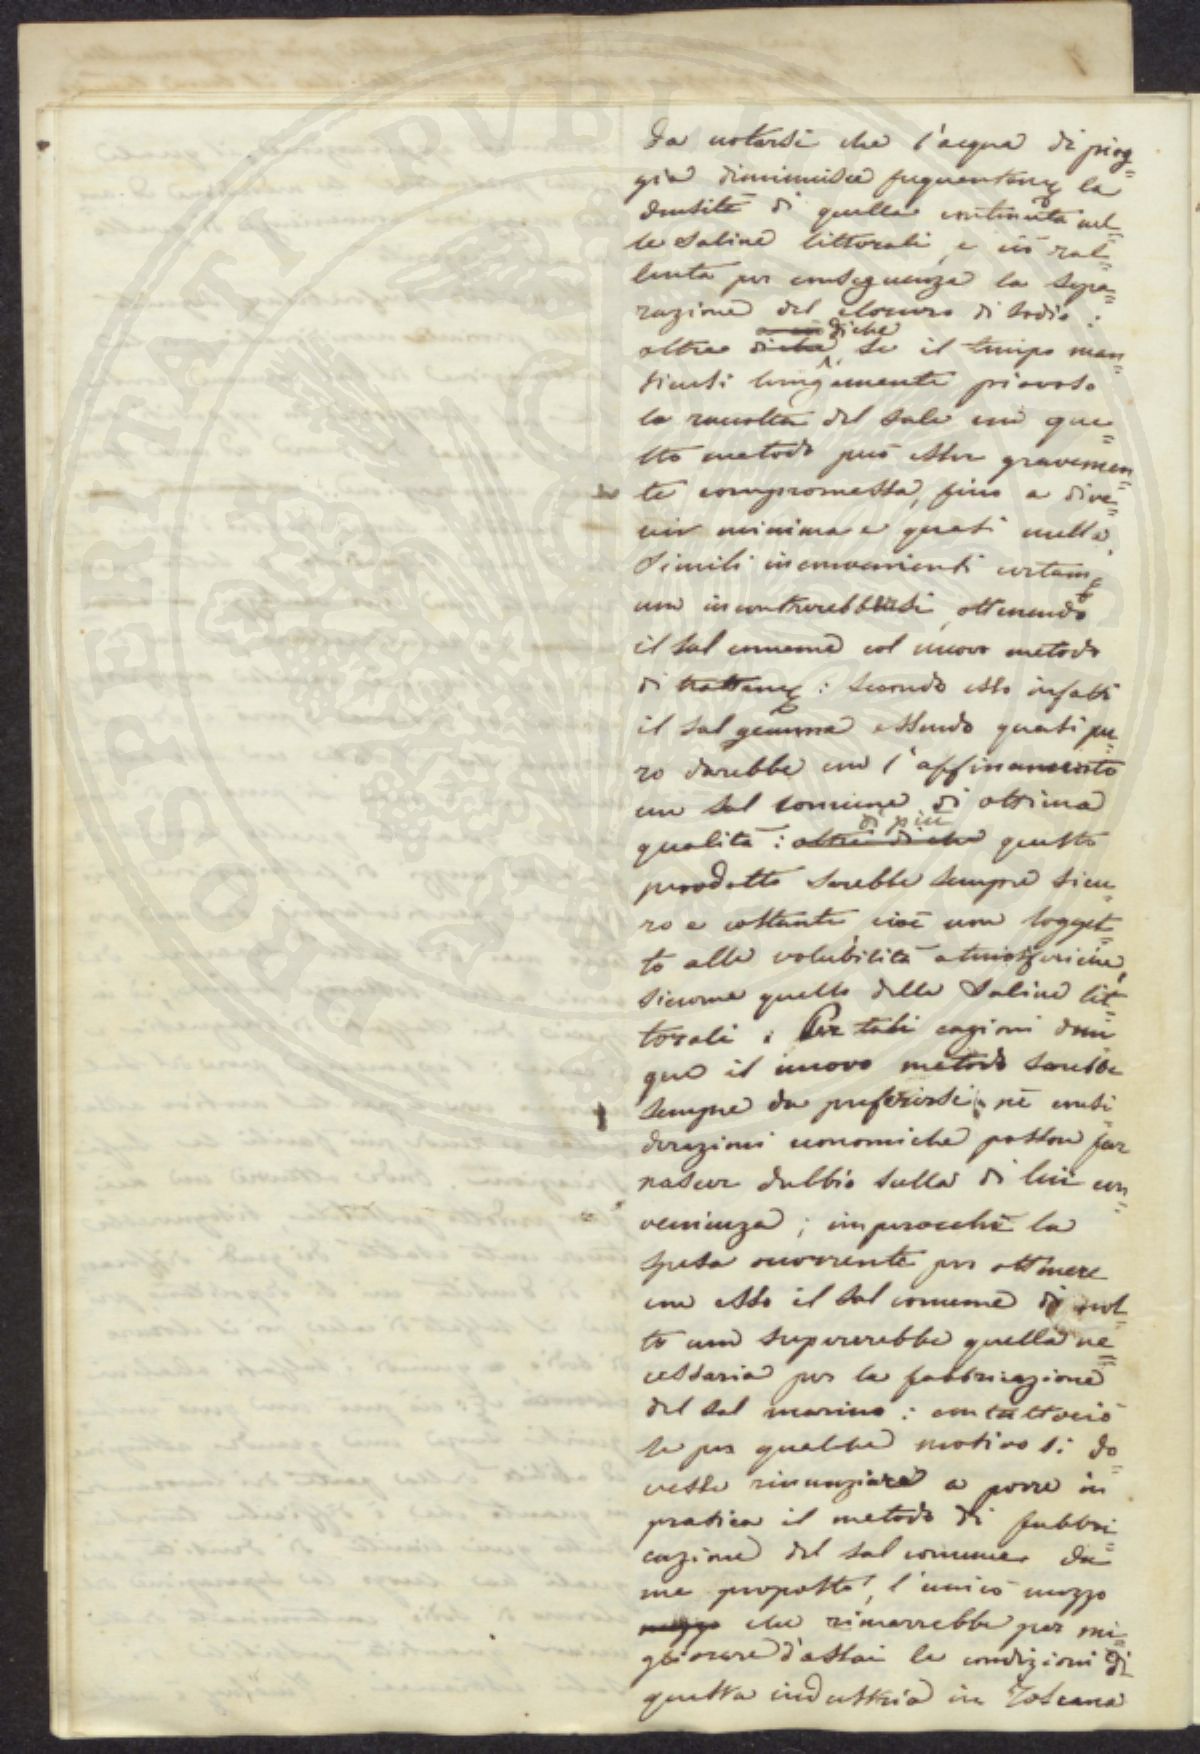 da notarsi che l'acqua di piog=
gia diminuisce frequentem.e la
densità di quella contenuta nel=
le Saline littorali, e ciò ral=
lenta per conseguenza la sepa=
razione del cloruro di sodio:
diche
oltre di che, se il tempo man=
tiensi lungamente piovoso
la raccolta del sale con que=
sto metodo può esser gravemen=
te compromessa, fino a dive=
nir minima e quasi nulla.
Simili inconvenienti certam.e
non incontrerebbersi, ottenendo
il sal comune col nuovo metodo
di trattam.e: secondo esso infatti
il sal gemma essendo quasi pu=
ro darebbe con l'affinamento
un sal comune di ottima
di più
qualità: oltre di che questo
prodotto sarebbe sempre sicu=
ro e costante, cioè non sogget=
to alle volubilità atmosferiche,
siccome quello delle Saline lit=
torali. Per tali cagioni dun=
que il nuovo metodo sarebbe
sempre da preferirsi, nè consi=
derazioni economiche posson far
nascer dubbio sulla di lui con=
venienza; imperocchè la
spesa occorrente per ottenere
con esso il sal comune di mol=
to non supererebbe quella ne=
cessaria per la fabbricazione
del sal marino: contuttociò
se per qualche motivo si do=
vesse rinunziare a porre in
pratica il metodo di fabbri=
cazione del sal comune da
me proposto, l'unico mezzo
mezzo che rimarrebbe per mi=
gliorare d'assai le condizioni di
questa industria in Toscana
PROSPERITATI PVBLICAE